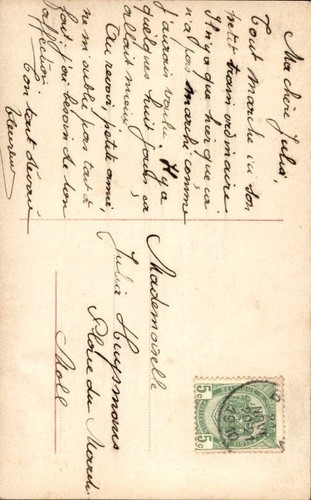 Ma chère Julia,
Tout marche ici son
petit train ordinaire
Il n'y a que hier que ça
n'a pas marché comme
j'aurais voulu. Il y a
quelques huit jours ça
allait mieux
Au revoir, petite amie,
ne m'oublie pas tout à
fait j'ai besoin de ton
affection.
Ton tout dévoué
Mademoiselle
Julia Huysmans
Place du Marché
Moll
5c 5c
5c 5c